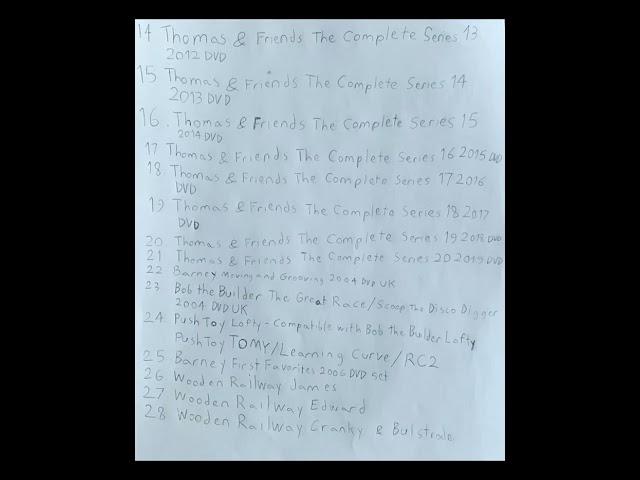 14 Thomas & Friends The Complete Series 13
2012 DVD
15 Thomas & Friends The Complete Series 14
2013 DVD
16. Thomas & Friends The Complete Series 15
2014 DVD
17 Thomas & Friends The Complete Series 16 2015 DVD
18. Thomas & Friends The Complete Series 17 2016
DVD
19 Thomas & Friends The Complete Series 18 2017
DVD
20. Thomas & Friends The Complete Series 19 2018 DVD
21 Thomas & Friends The Complete Series 20 2019 DVD
22 Barney Moving and Grooving 2004 DVD UK
23 Bob the Builder The Great Race/Scoop The Disco Digger
2004 DVD UK
24. Push Toy Lofty - Compatible with Bob the Builder Lofty
Push Toy TOMY/Learning Curve/RC2
25 Barney First Favorites 2006 DVD set
26 Wooden Railway James
27 Wooden Railway Edward
28 Wooden Railway Cranky & Bulstrode